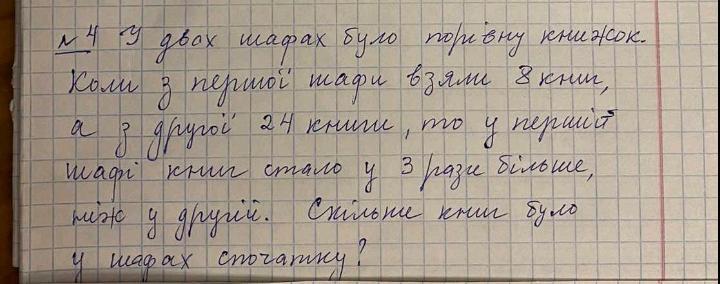 №4 У двох шафах було порівну книжок.
Коли з першої шафи взяли 8 книг,
а з другої 24 книги, то у першій
шафі книг стало у 3 рази більше,
ніж у другій. Скільки книг було
у шафах спочатку?